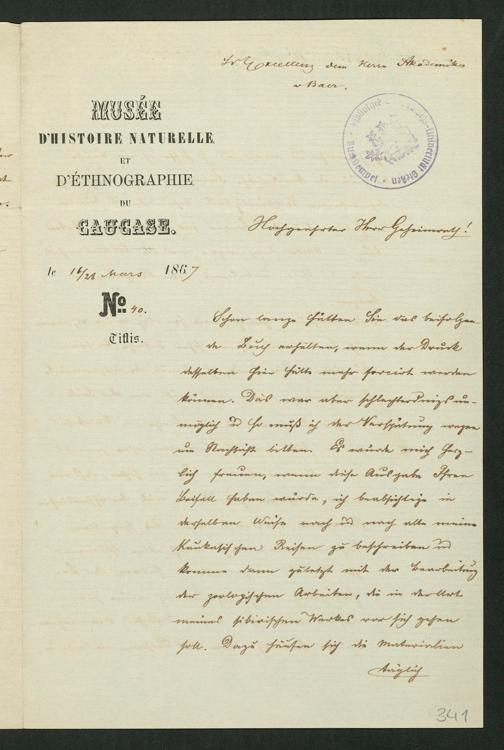 Sr Excellenz dem Herrn Akademiker
v Baer.
MUSÉE
D'HISTOIRE NATURELLE,
ET
D'ÉTHNOGRAPHIE
DU
CAUCASE.
Hochgeehrter Herr Geheimrath!
le 16/28 Mars 1867
No. 40.
Tiflis.
Schon lange hätten Sie das beifolgen-
de Buch erhalten, wenn der Druck
desselben hier hätte mehr forcirt werden
können. Das war aber schlechterdings un-
möglich u so muß ich der Verspätung wegen
um Nachsicht bitten. Es würde mich herz-
lich freuen, wenn diese Ausgabe Ihren
Beifall haben würde, ich beabsichtige in
derselben Weise nach und nach alle meine
Kaukasischen Reisen zu beschreiben und
komme dann zuletzt mit der Bearbeitung
der zoologischen Arbeiten, die in der Art
meines sibirischen Werkes vor sich gehen
soll. Dazu häufen sich die Materialien
täglich
341